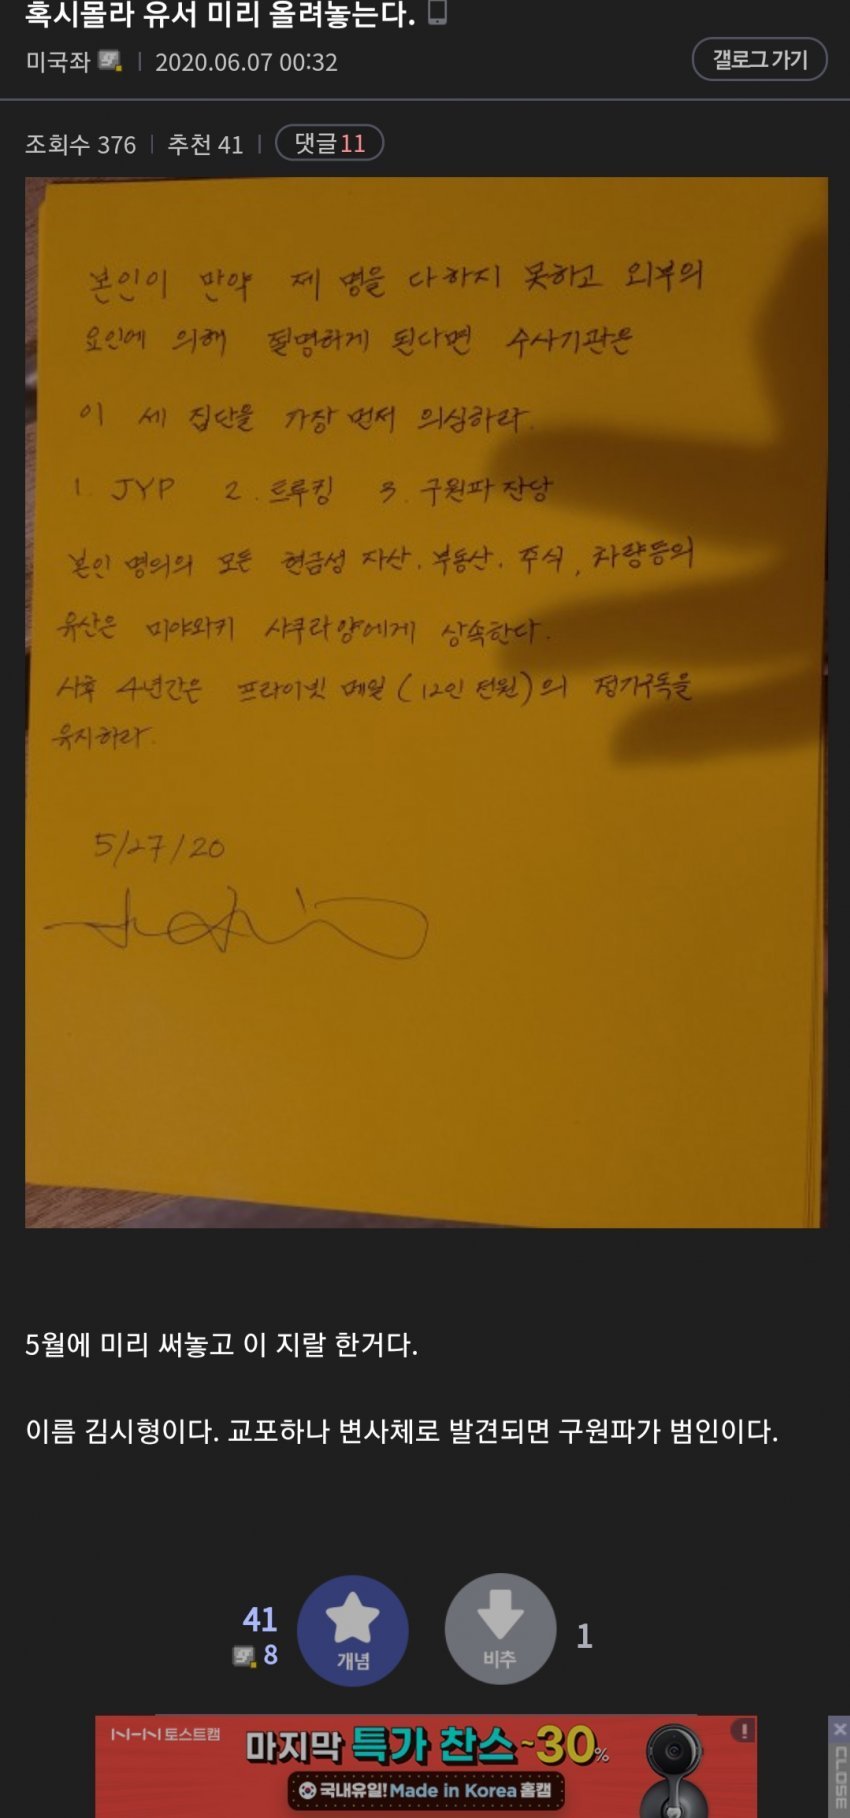 혹시몰라 유서 미리 올려놓는다.
미국좌 2020.06.07 00:32
갤로그 가기
조회수 376 추천 41 댓글 11
본인이 만약 제 명을 다하지 못하고 외부의
요인에 의해 필명하게 된다면 수사기관은
이 세 집단을 가장 먼저 의심하라.
1. JYP 2. 트루킹 3. 구원파 잔당
본인 명의의 모든 현금성 자산, 부동산, 주식, 차량등의
유산은 미야와키 사쿠라양에게 상속한다.
사후 4년간은 프라이빗 메일 (12인 전원)의 정기구독을
유지하라.
5/27/20
5월에 미리 써놓고 이 지랄 한거다.
이름 김시형이다. 교포하나 변사체로 발견되면 구원파가 범인이다.
41
8
개념
비추
1
NHN 토스트캠
마지막 특가 찬스 ~30%
국내유일! Made in Korea 홈캠
CLOSE